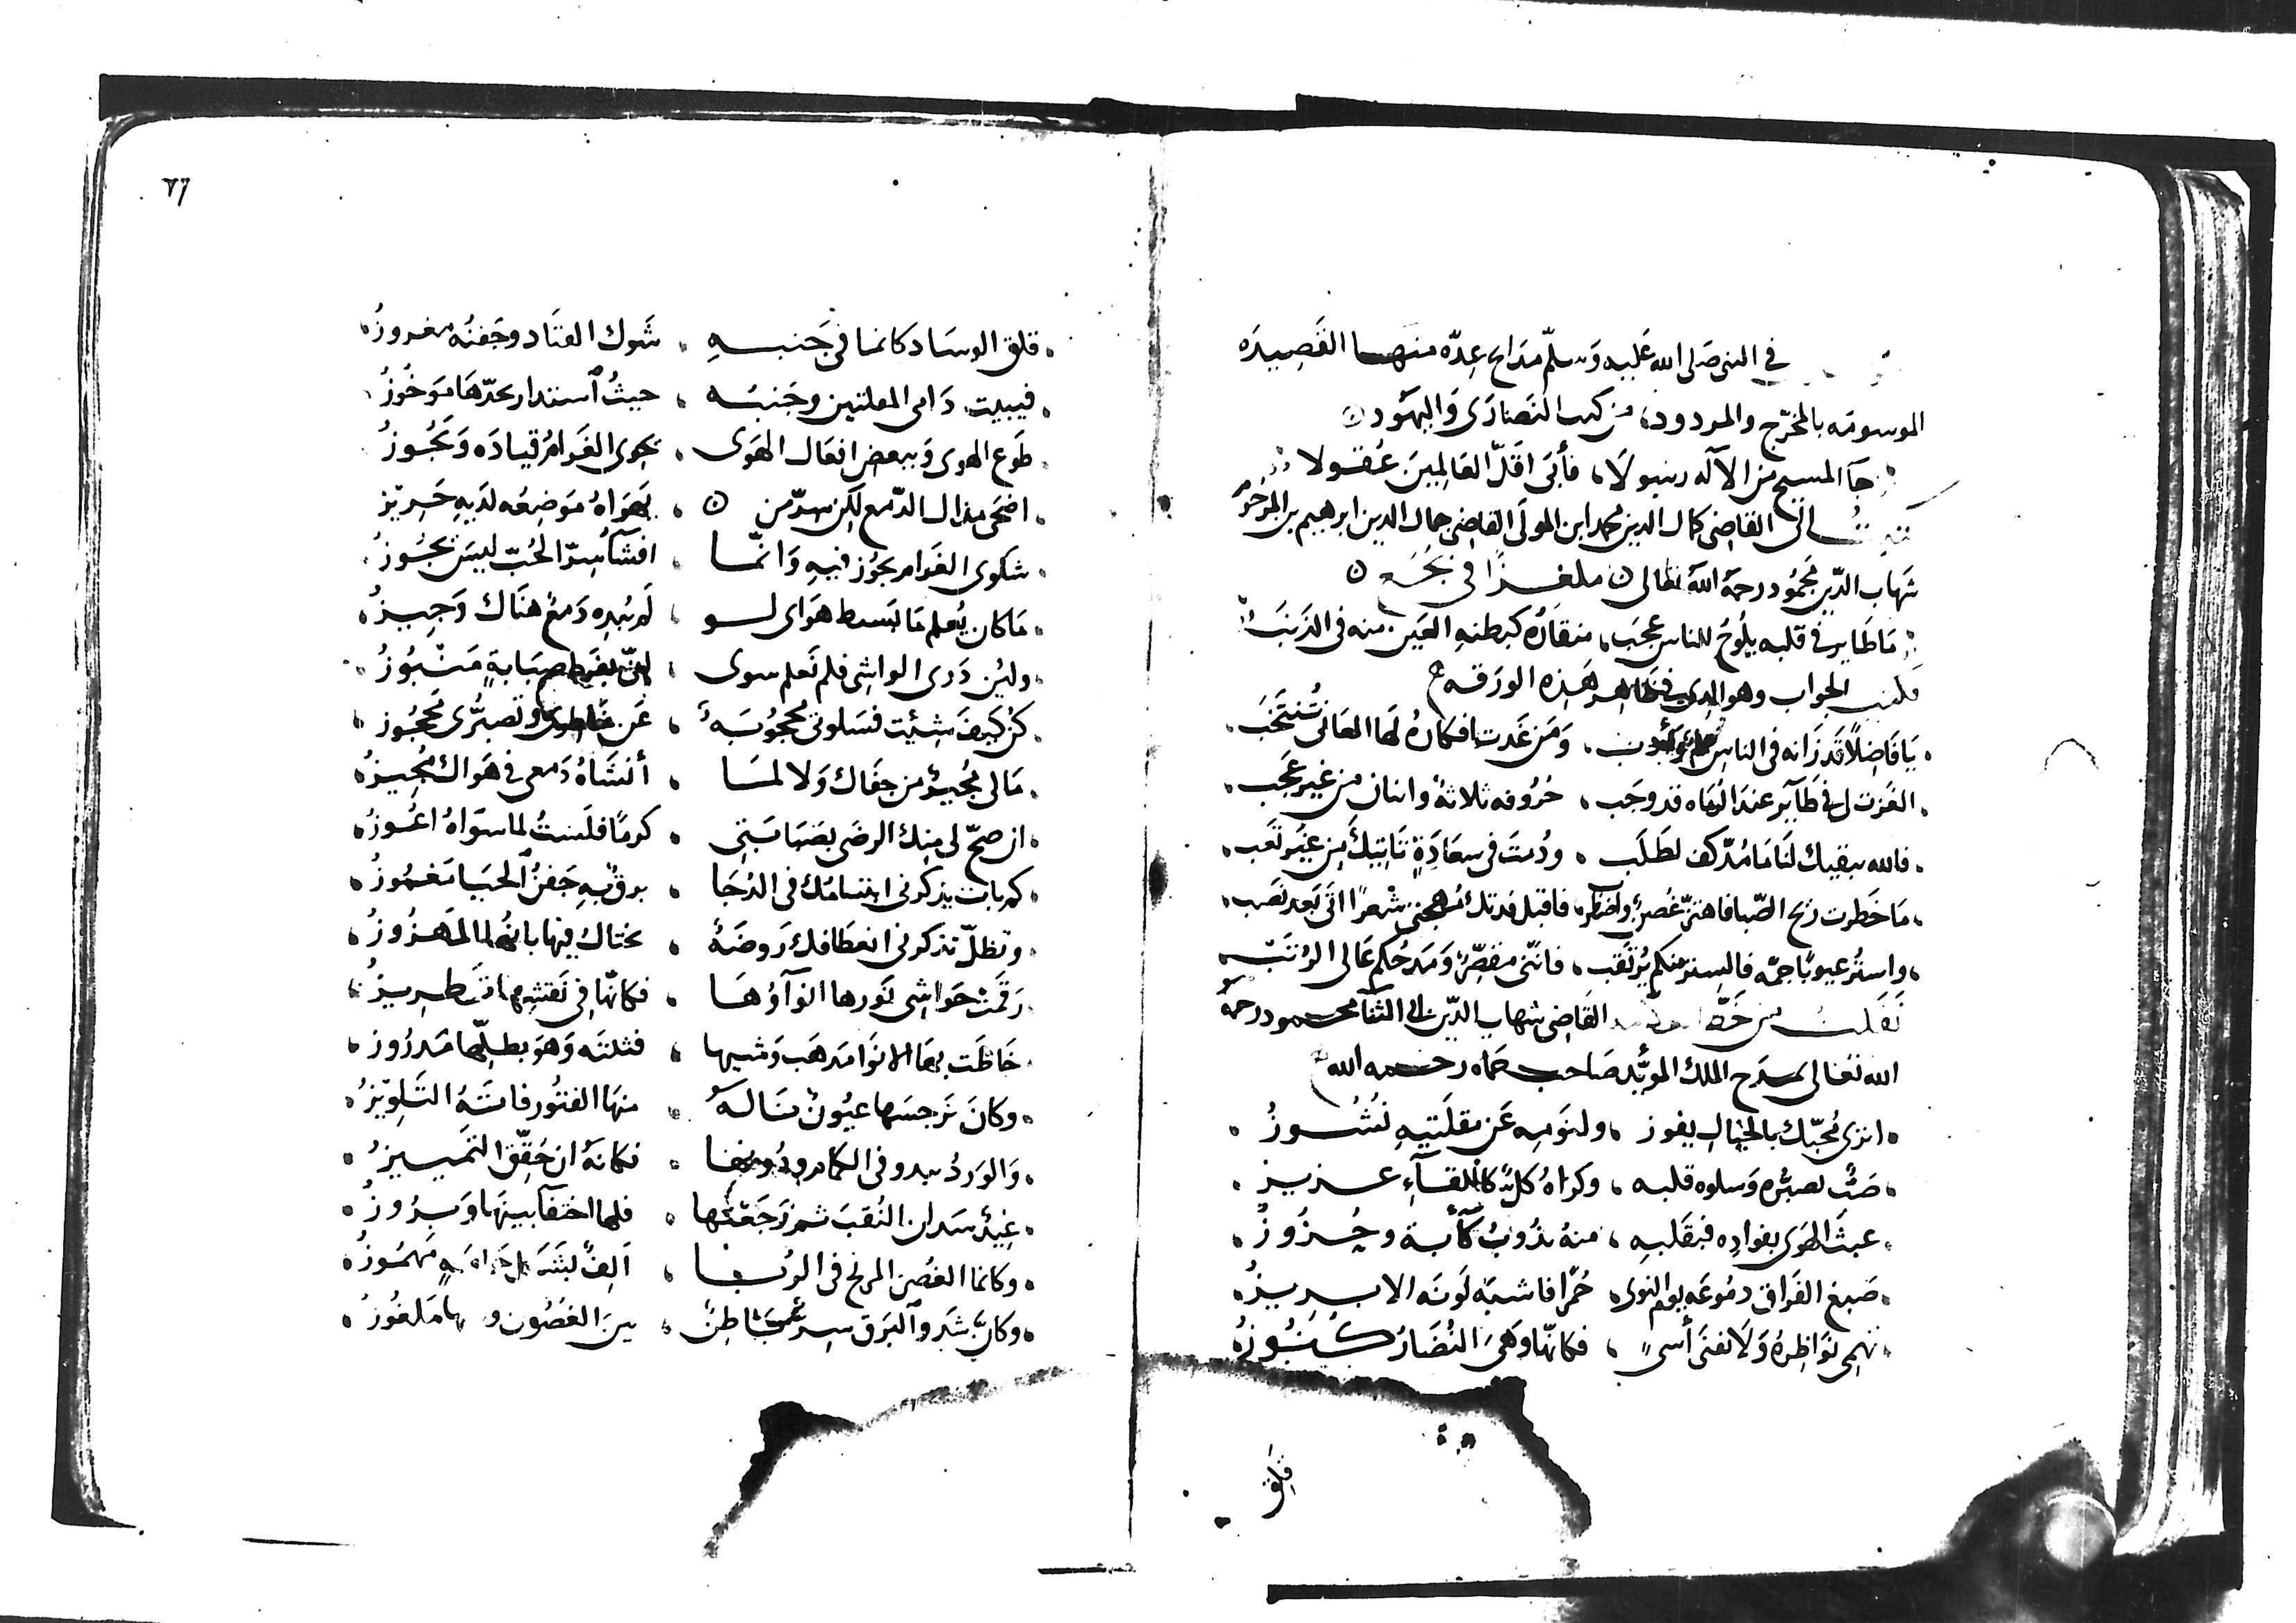 في النبي صَلى الله عَليه وَسلّم مدَاح عِدّه منهـا القَصِيدَه
الموسومَه بالمخرّج والمردود، من كتب النصَارَى وَاليَهود
جَآ المسيح من الآله رسولَا، فأبَى اقَلّ العَالمِينَ عُقولا
كتبتُ الى القاضى كمال الدين محمد ابن المولَى القاضى جمال الدين ابرهيم بن المرحُوم
شهَاب الدّين محمُود رحمَهُ اللهُ تعالى ملغـزًا في
مَا طَاير في قلبه يلُوحُ للناس عجَب، منقارُه كبطنهِ العَين منه في الذنَبْ
فكتب الجواب وهو الذي هَذه الورَقه
يَا فَاضِلًا قَد زَانه في الناس، وَمَن غَدت افكارُهُ لهَا المعَانى تُنتخَب
الغَزت لي في طَآيرٍ عندَ قد وجَب، حُرُوفه ثلاثةٌ واثنان من غير عجَب
فالله يبقيك لنَا مَا مُدّ كف لطَلَب، ودُمتَ في سعَادَةٍ تَاتيكَ مِن غير تعَب
مَا خطرت ريح الصّبا فاهتزّ غُصنٌ، فاقبل فدتك مُهجتي شعرًا اتَى بَعد نصَب
واستُر عيوبًا جمّه فالستر منكم يُرتقَب، فانّني مقصّرٌ وَمَدحُكم عَالى الرُتَبْ
نَقَلت من خَطّ القَاضِى شهاب الدّين ابي الثنَآ محمـود رحمَهُ
الله تعَالى يمـدَح الملك المؤيّد صَاحب حَماه رحـمـه الله
اترى مُحبّك بالخيَال يفوز، ولنَومِه عَن مقلَتيهِ نُشُـوزُ
صَبٌّ تصبّره وَسلوه قلبه، وكراهُ كلٌّ كاللقَـآءِ عـزيز
عبثَ الهَوى بفؤادِه فبقَلبهِ، منهُ نذُوبُ كآبة وحُـزُوزُ
صَبغ الفَراق دمُوعَه يوم النوى، حُمرًا فاشبَه لَونَه الابـرِيزُ
تهمى نَوَاظِرهُ وَلَا تفنَى أسىً، فكانّها وَهىَ النُضَارُ كُـنُوزُ
قلِق
٢٦
قلق الوسَاد كانما في جَنبـهِ، شَوك القتَاد وجَفنُه مغروزُ
فيبيت دَامى المقلتين وجَنبُه، حيثُ استدار بحدّهَا مَوخُوزُ
طَوع الهوى وَببعض افعَال الهَوى، يحوى الغَرامُ قيادَه وَيَحُوزُ
اضحَى مذال الدّمع لكِن سِرّ من، يَهوَاهُ مَوضِعُه لديهِ حَرِيزُ
شكوى الغَرام يجوُز فيهِ وَانّمـا، افشَآ سِرّ الحُبّ ليسَ يجُوزُ
مَا كان يُعلم مَا بَسط هَواى لـو، لَم يُبدِه دَمعٌ هنَاك وَجِيـزُ
ولئن دَرى الواشِى فلم تَعلم سوى، بفَرط صبَابةٍ مَنبُوزُ
كن كَيفَ شِئيت فسَلوتي محجوُبَةٌ، عَن خاطرى وتصبُّرى محجُوز
مَالى مُجيرٌ من جفَاك وَلا لمـا، أنشَاهُ دَمعى في هَواك مُجِيـزُ
ان صحّ لى منِك الرضَى بصَبَابَتى، كرمًا فلَستُ لما سوَاهُ اعُـوزُ
كم بات يذكرنى ابتسامُك في الدُجَا، برقٌ بهِ جَفنُ الحيَا مَغمُوزُ
وتظلّ تذكرنى انعطَافك رَوضَةٌ، يختَال فيها بانُها المَهزُوزُ
رَقمَتْ حَواشِى نَورها انوَآؤُهَـا، فكانّها في نَقشِهـا تَطـرِيزُ
خَاطَت بهَا الانوَا مذهَب وَشيِها، فثلتَه وَهوَ بطلِّها مَدرُوز
وكانَ نَرجسَها عيُونٌ نَـالَهُ، منهَا الفتُور فاتَهُ التَلوِيزُ
وَالوَردُ يبدو في الكمام، فكانهُ ان حُقّق التَميِـيزُ
غِيدٌ سَدلن النُقبَ ثم رَجَعنها، فلها اختفَآ بينَها وَبـرُوزُ
وكانما الغُصن المرنّح في الرُبـا، اَلِفٌ مَهمُوزُ
وكانَ شَدو البَرق سِـرّ بَاطِنٌ، بين الغصُون مَلغُوزُ